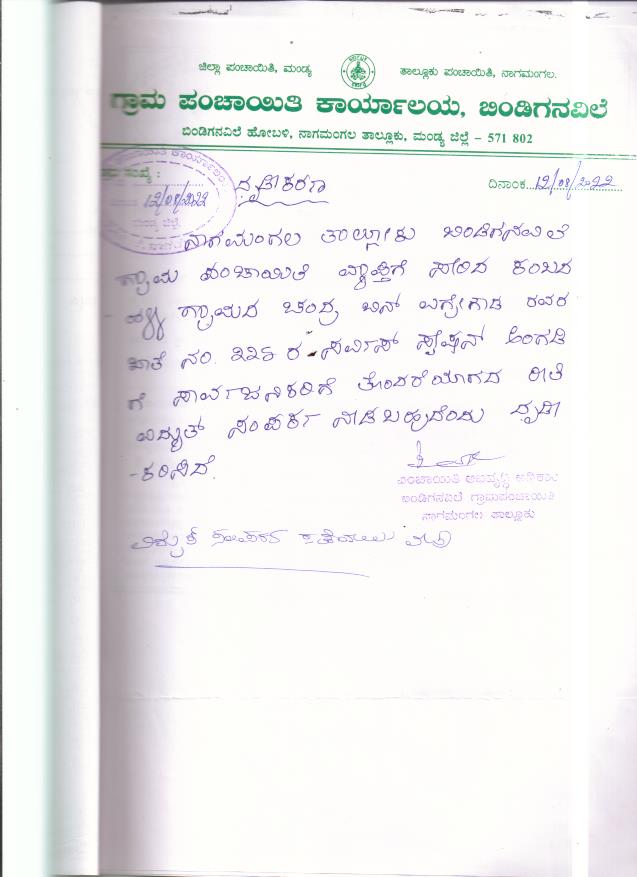 ಜಿಲ್ಲಾ ಪಂಚಾಯಿತಿ, ಮಂಡ್ಯ ತಾಲ್ಲೂಕು ಪಂಚಾಯಿತಿ, ನಾಗಮಂಗಲ.
ಗ್ರಾಮ ಪಂಚಾಯಿತಿ ಕಾರ್ಯಾಲಯ, ಬಿಂಡಿಗನವಿಲೆ
ಬಿಂಡಿಗನವಿಲೆ ಹೋಬಳಿ, ನಾಗಮಂಗಲ ತಾಲ್ಲೂಕು, ಮಂಡ್ಯ ಜಿಲ್ಲೆ - 571 802
ಸಂಖ್ಯೆ : ದಿನಾಂಕ 12/09/2022
12/09/2022
ಮಂಡ್ಯ ಜಿಲ್ಲೆ
ದೃಢೀಕರಣ
ನಾಗಮಂಗಲ ತಾಲ್ಲೂಕು ಬಿಂಡಿಗನವಿಲೆ
ಗ್ರಾಮ ಪಂಚಾಯಿತಿ ವ್ಯಾಪ್ತಿಗೆ ಸೇರಿದ
ಹಳ್ಳಿ ಗ್ರಾಮದ ಚಂದ್ರ ಬಿನ್ ರವರ
ಖಾತೆ ನಂ. ರ ಸರ್ವಿಸ್ ಸ್ಟೇಷನ್ ಅಂಗಡಿ
ಗೆ ಸಾರ್ವಜನಿಕರಿಗೆ ತೊಂದರೆಯಾಗದ ರೀತಿ
ವಿದ್ಯುತ್ ಸಂಪರ್ಕ ನೀಡಬಹುದೆಂದು ದೃಢೀ
-ಕರಿಸಿದೆ.
ಪಂಚಾಯಿತಿ ಅಭಿವೃದ್ಧಿ ಅಧಿಕಾರಿ
ಬಿಂಡಿಗನವಿಲೆ ಗ್ರಾಮಪಂಚಾಯಿತಿ
ನಾಗಮಂಗಲ ತಾಲ್ಲೂಕು